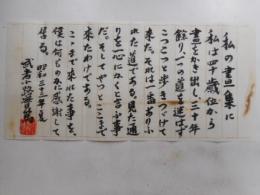 私の畫集に
私は四十歳位から
畫をかき出し三十年
餘り、一つの道を迷はず
こつこつと歩きつゞけて
来た。それは一番ありふ
れた道である。見た通
りを一心にかくと言ふ事
だ。そしてやつとこゝまで
来たわけである。
こゝまで来れた事を、
僕は何ものかに感謝して
ゐる。
昭和三十三年夏
武者小路實篤